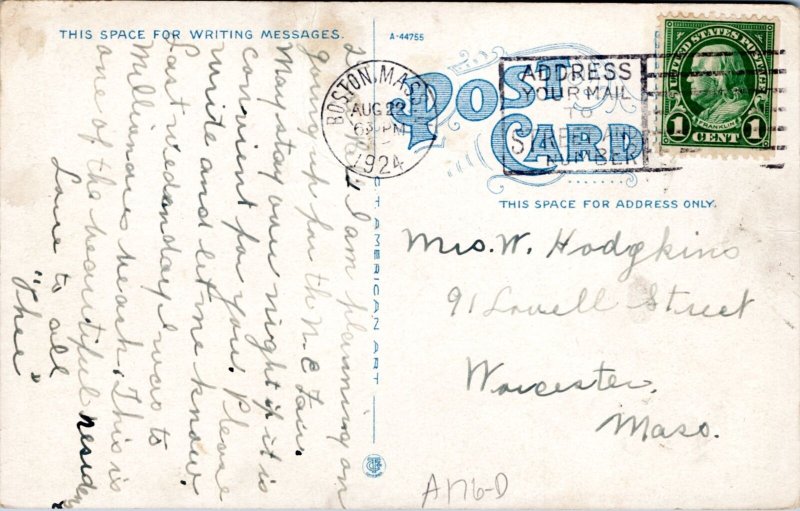 THIS SPACE FOR WRITING MESSAGES.
A-44755
POST CARD
BOSTON, MASS
AUG 22
6 PM
1924
ADDRESS
YOUR MAIL
TO
STREET AND
NUMBER
UNITED STATES POSTAGE
FRANKLIN
1 CENT 1
THIS SPACE FOR ADDRESS ONLY.
I am planning on
going up for th N.E Fair.
May stay over night if it is
convient for you. Please
write and let me know.
Last wednesday I was to
Millionaires beach, This is
one of the beautiful residen
Love to all
"Thee"
AMERICAN ART
Mrs. W. Hodgkins
91 Lovell Street
Worcester.
Mass.
A176-D